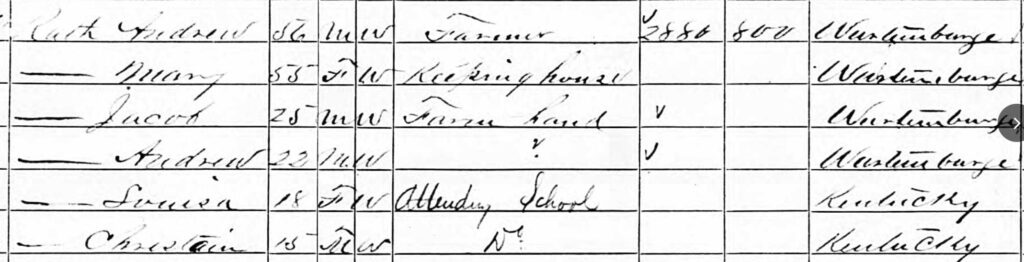 Rath Andrew 56 M W Farmer √ 2880 800 Wurtemburge
— Mary 55 F W Keeping house Wurtemburge
— Jacob 25 M W Farm hand √ Wurtemburge
— Andrew 22 M W " √ Wurtemburge
— Louisa 18 F W Attending School Kentucky
— Christain 15 M W Do Kentucky